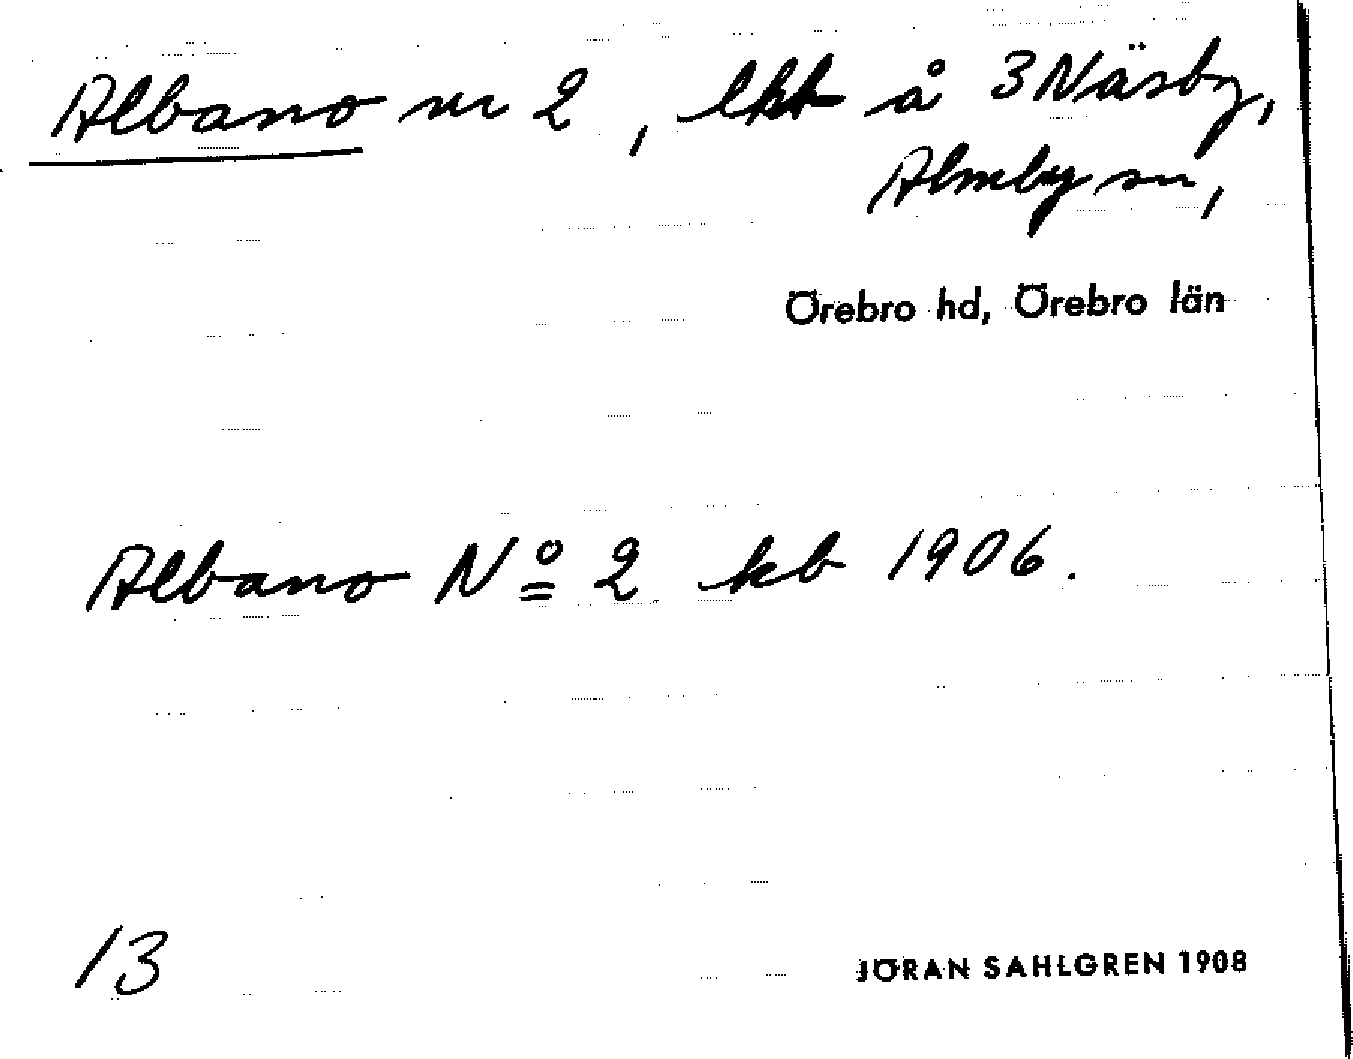 Albano nr 2, lht å 3 Näsby,
Almby sn,
Örebro hd, Örebro län
Albano Nº 2 kb 1906.
13
JÖRAN SAHLGREN 1908